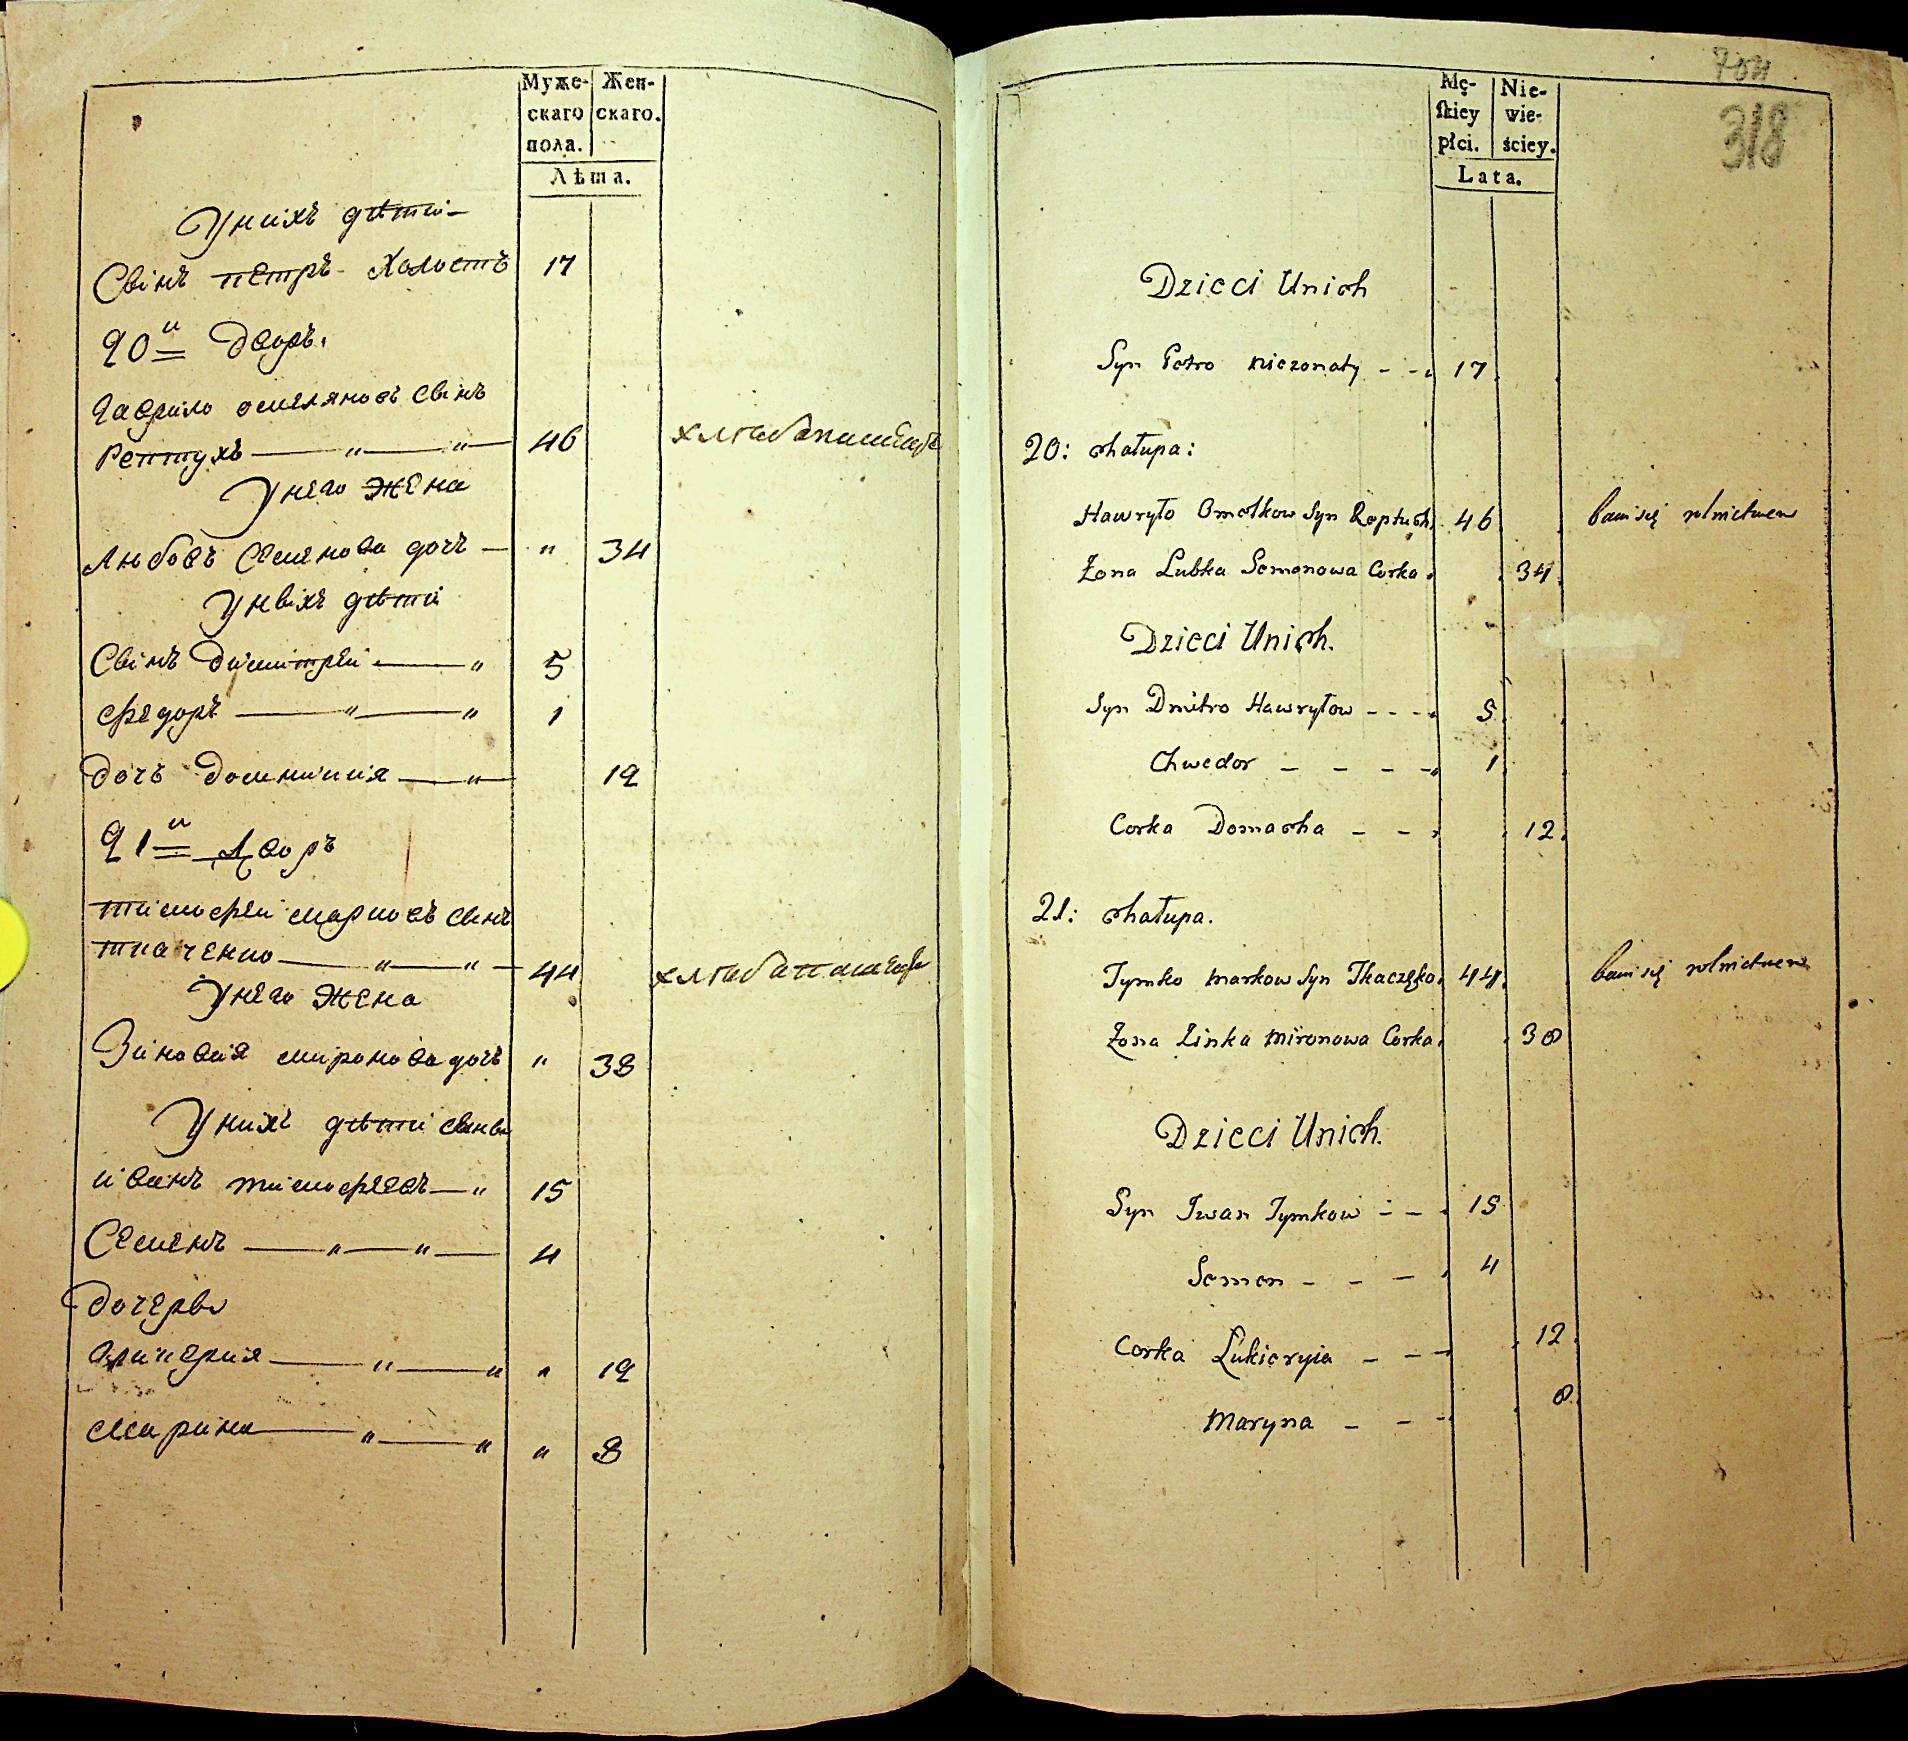 Муже-
скаго
пола.
Жен-
скаго.
Лѣта.
У нихъ дѣти
Свінъ петръ холостъ 17
20й Дворъ.
Гаврило омеляновъ свінъ
Рептухъ 46 хлѣбопашецъ
У него жена
Любовъ Семенова дочъ " 34
У нвіхъ дѣти
Свінъ Димітрей " 5
Федоръ " " 1
Дочъ Домникия " 12
21й Дворъ
тимофей марковъ свинъ
ткаченко " " 44 хлѣбопашецъ
У него жена
Зиновия миронова дочъ " 38
У нихъ дѣти свинви
иванъ тимофеевъ " 15
Семенъ " " 4
Дочерви
" " " 12
Марина " " " 8
704
318
Mę-
skiey
płci.
Nie-
wie-
ściey.
Lata.
Dzieci Unich
Syn Petro nieżonaty - - 17
20: chałupa:
Hawryło Omelkow Syn Reptuch 46 bawi się rolnictwem
Żona Lubka Semenowa Corka. 34
Dzieci Unich.
Syn Dmitro Hawryłow - - - 5
Chwedor - - - - 1
Corka Domacha - - 12.
21: chałupa.
Tymko markow Syn Tkaczęko. 44 bawi się rolnictwem
Żona Zinka mironowa Corka. 38
Dzieci Unich.
Syn Iwan Tymkow - - 15
Semen - - - 4
Corka Łukieryia - - - 12
Maryna - - - 8